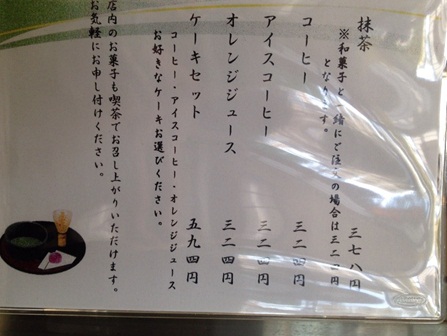 抹茶 三七八円
※和菓子と一緒にご注文の場合は三二四円
となります。
コーヒー 三二四円
アイスコーヒー 三二四円
オレンジジュース 三二四円
ケーキセット 五九四円
コーヒー・アイスコーヒー・オレンジジュース
お好きなケーキお選びください。
店内のお菓子も喫茶でお召し上がりいただけます。
お気軽にお申し付けください。